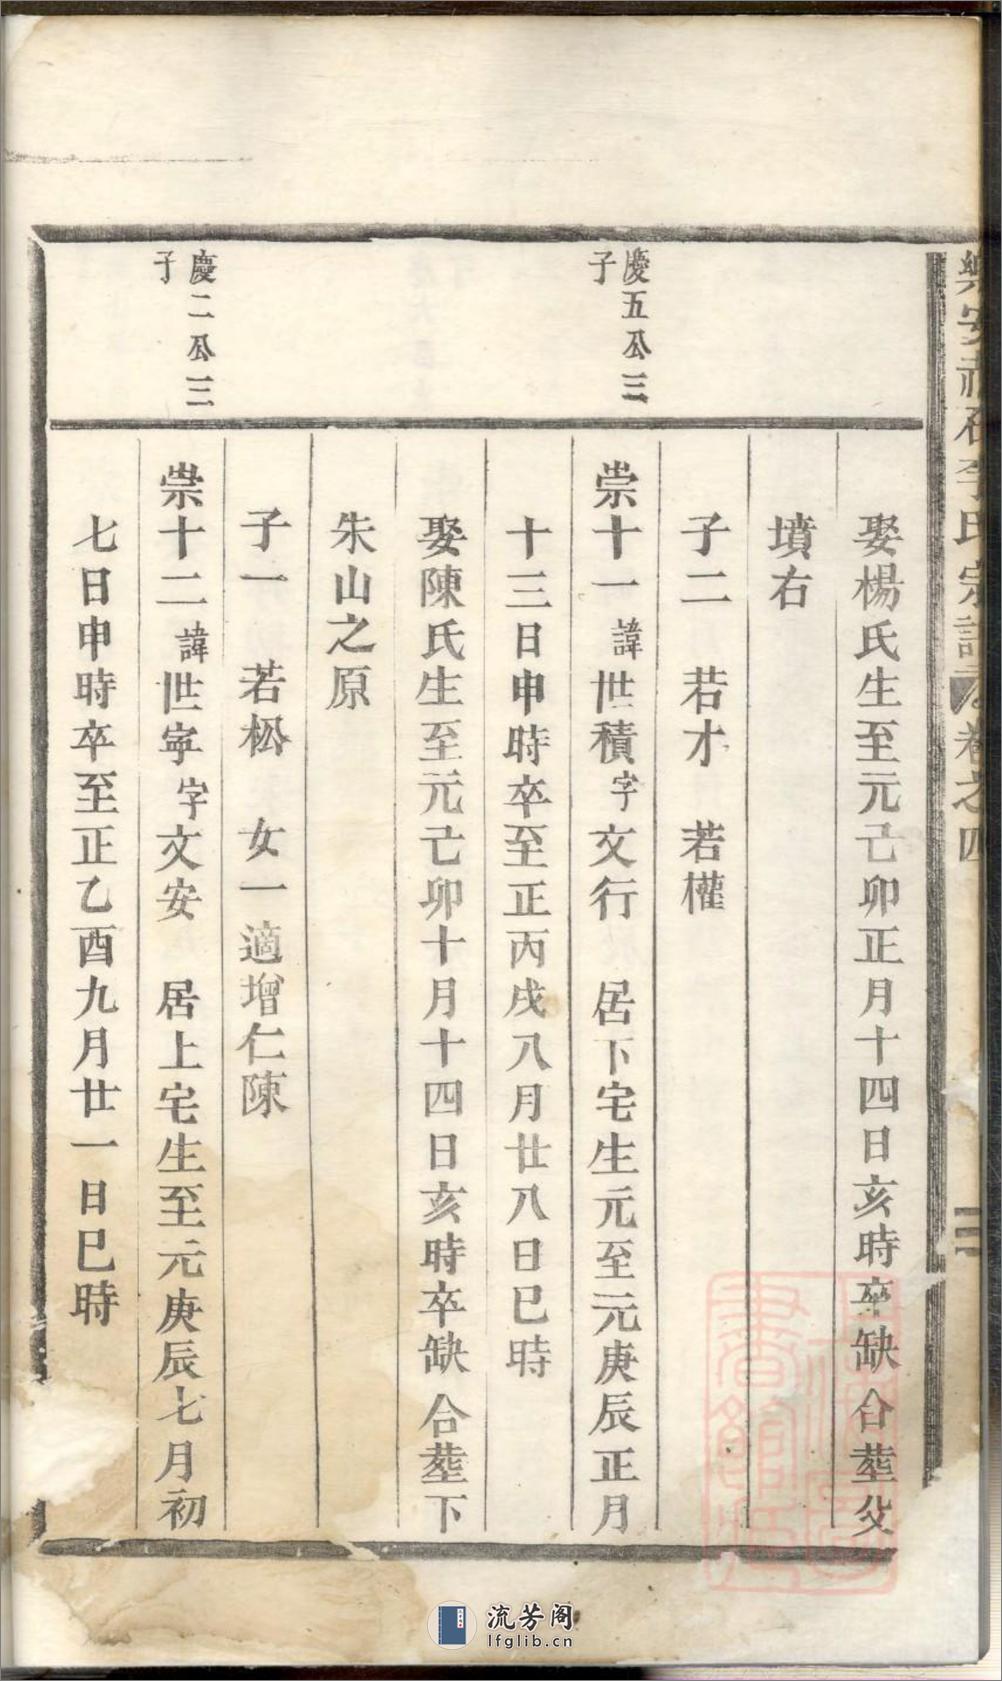 樂安礻石李氏宗譜 卷之四
娶楊氏生至元己卯正月十四日亥時卒缺合塟父
墳右
子二 若才 若權
慶五公三
子
崇十一諱世積字文行 居下宅生元至元庚辰正月
十三日申時卒至正丙戌八月廿八日巳時
娶陳氏生至元己卯十月十四日亥時卒缺合塟下
朱山之原
子一 若松 女一適增仁陳
慶二公三
子
崇十二諱世寧字文安 居上宅生至元庚辰七月初
七日申時卒至正乙酉九月廿一日巳時
流芳阁
lfglib.cn